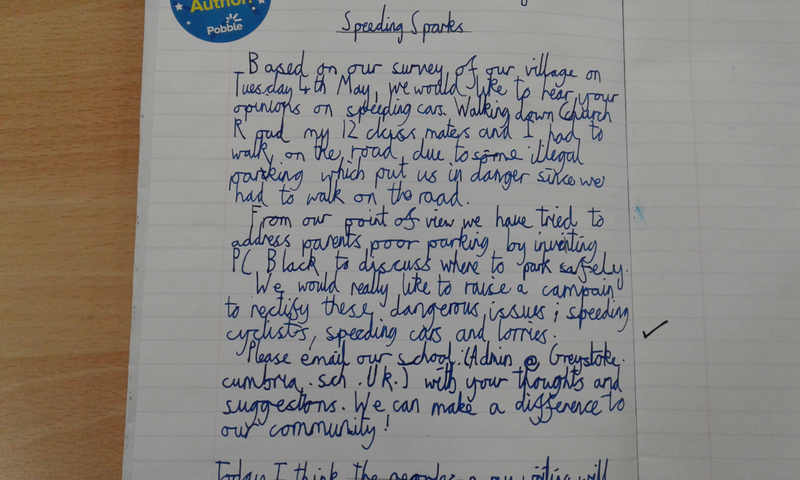 Author
Pobble
Speeding Sparks
Based on our survey of our village on
Tuesday 4th May, we would like to hear your
opinions on speeding cars. Walking down Church
Road my 12 class mates and I had to
walk on the road, due to some illegal
parking which put us in danger since we
had to walk on the road.
From our point of view we have tried to
address parents poor parking by inventing
PC Black to discuss where to park safely.
We would really like to raise a campain
to rectify these dangerous issues; speeding
cyclists, speeding cars and lorries.
Please email our school. (Admin @ Greystoke.
cumbria.sch.Uk.) with your thoughts and
suggestions. We can make a difference to
our community!
Today I think the my writing will